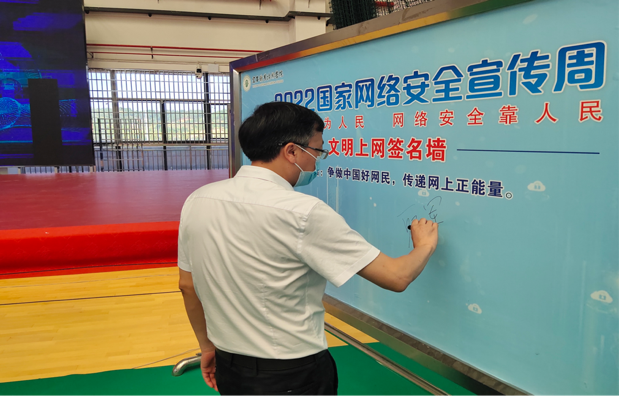 2022国家网络安全宣传周
为人民 网络安全靠人民
文明上网签名墙
争做中国好网民，传递网上正能量。